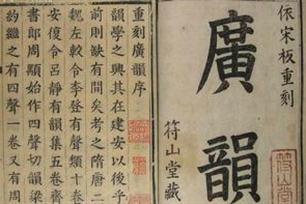 依宋板重刻
廣韻
符山堂藏
符山堂
重刻廣韻序
韻學之興其在建安以後乎
前則缺有間矣考之隋唐二
魏左較令李登有聲類十卷
安復令吕靜有韻集五卷齊
書郎周顒始作四聲切韻梁
約繼之有四聲一卷又有周